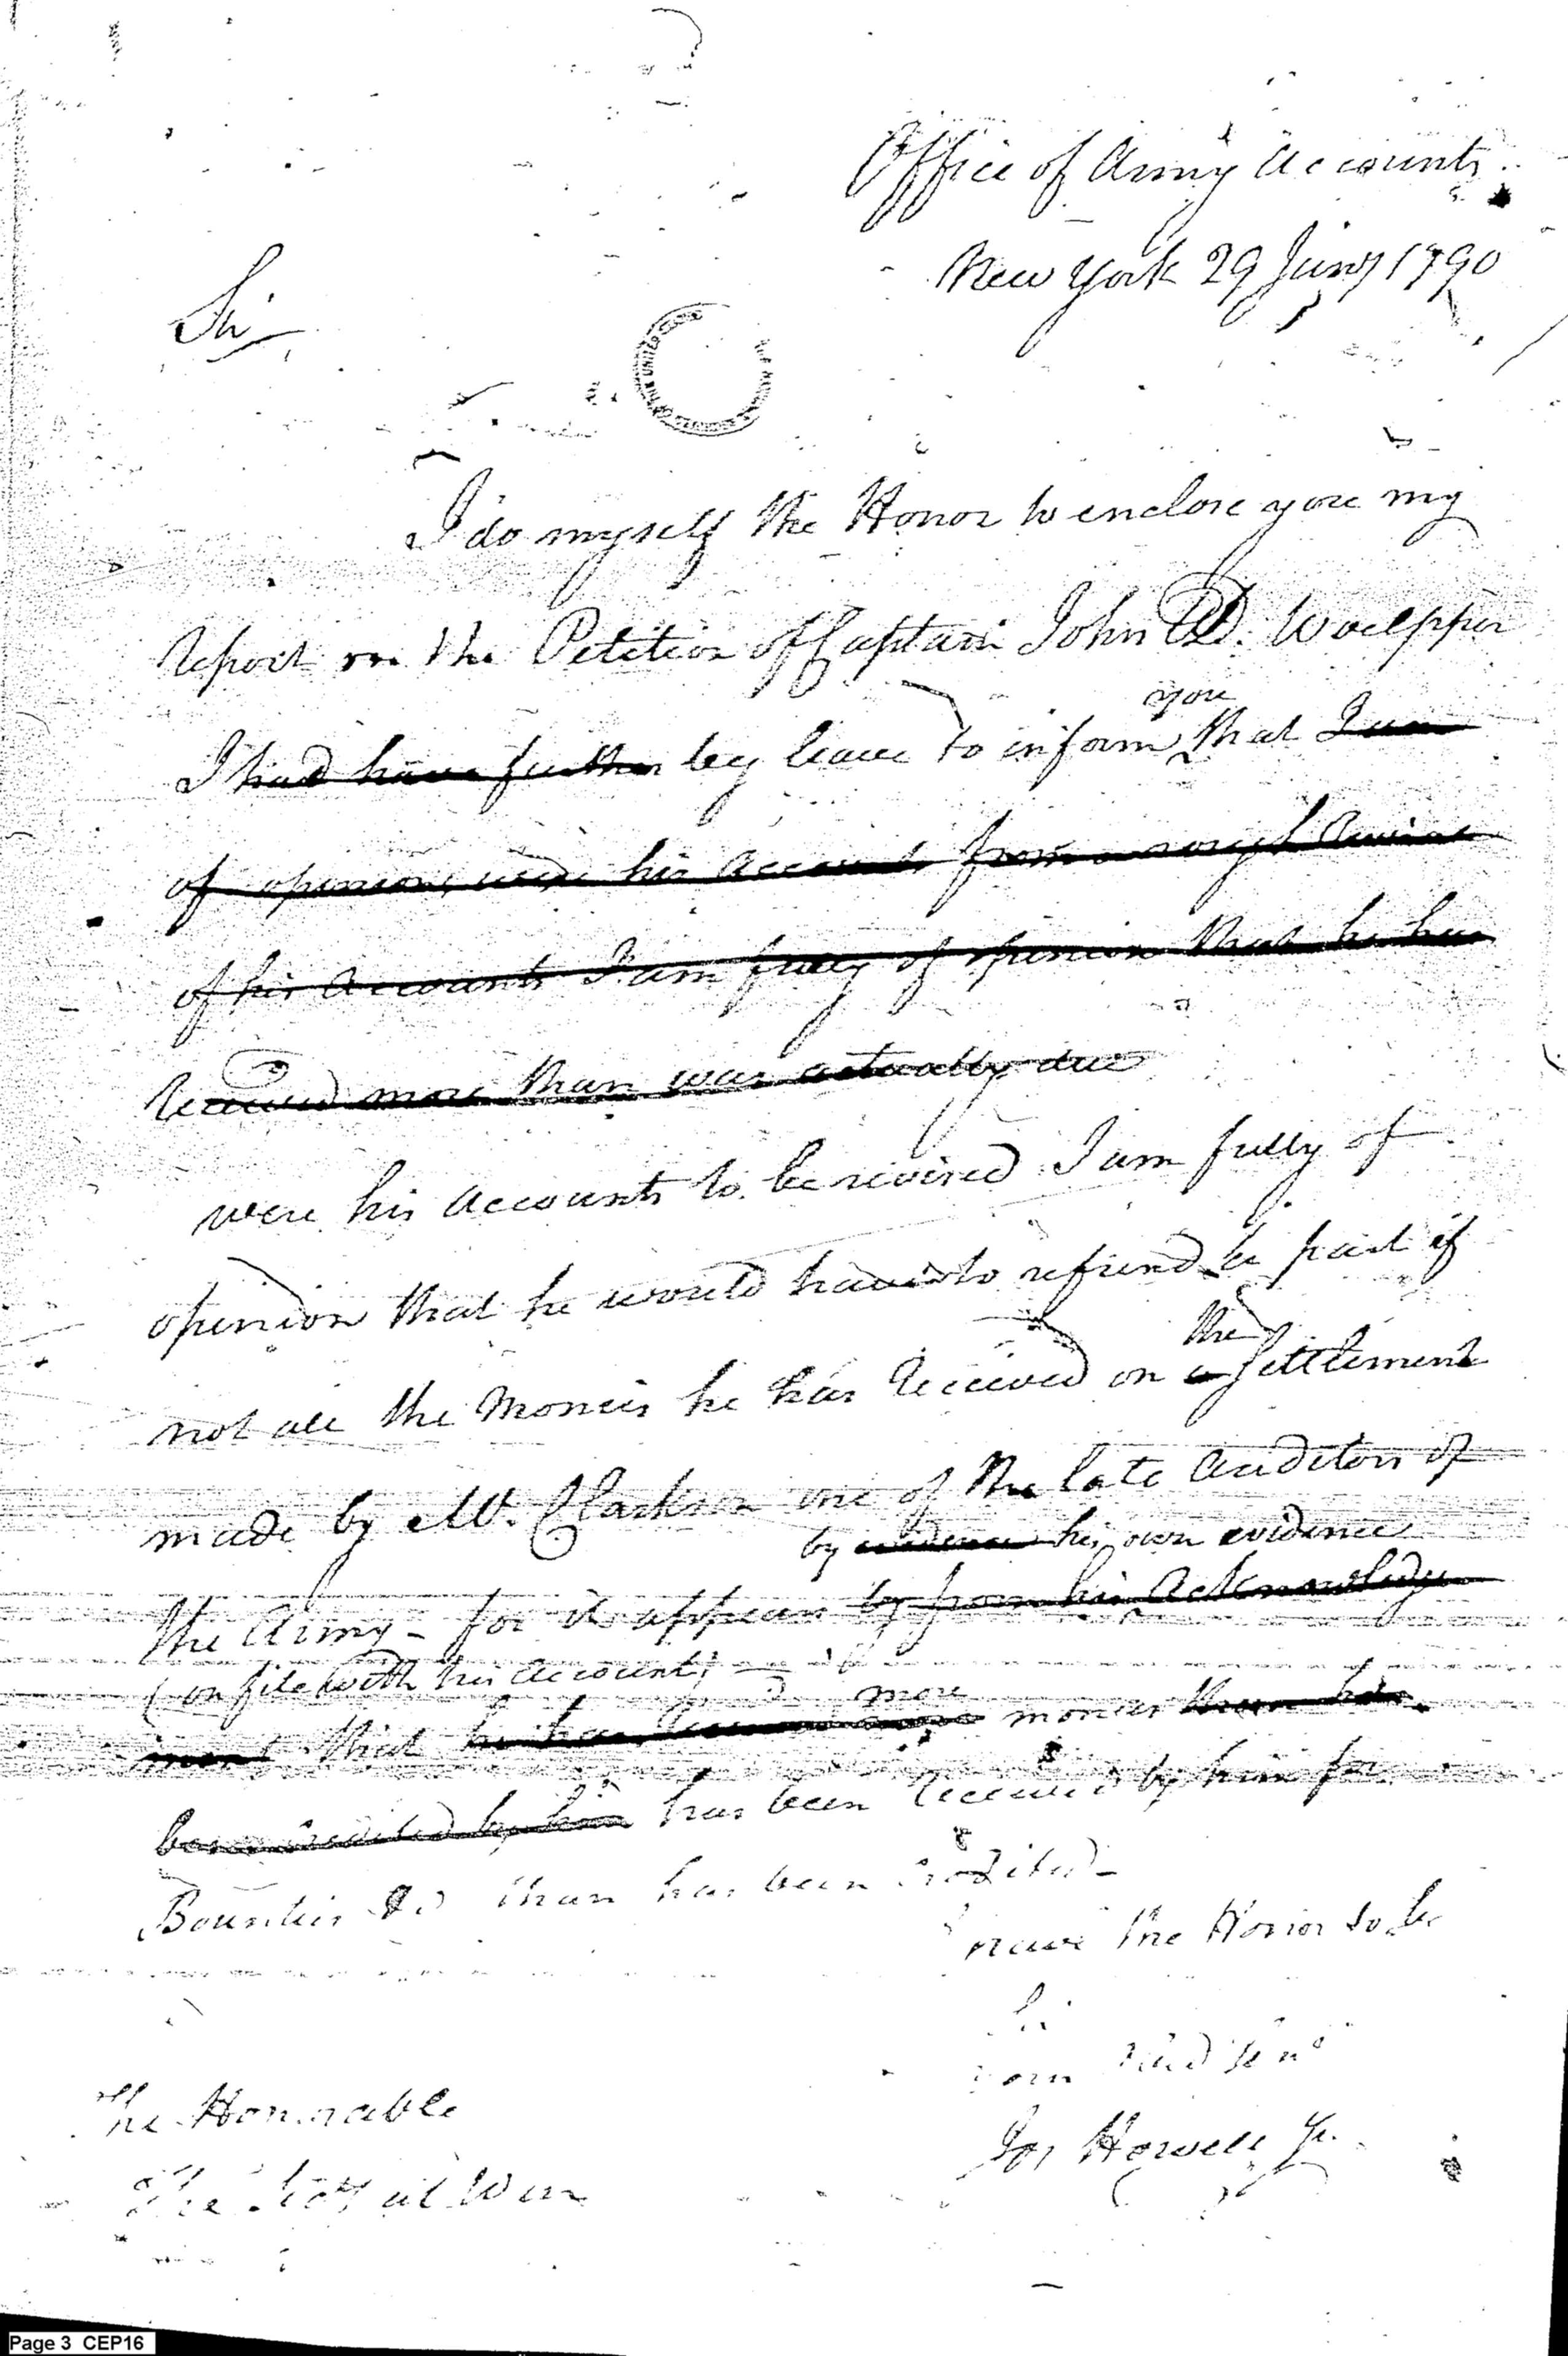 Office of Army Accounts
New York 29 Jany 1790
Sir
I do myself the Honor to enclose you my
report on the Petition of Captain John D. Woelpper
you
I had have further beg leave to inform that I am
of opinion, were his Accounts from a rough
of his Accounts I am fully of opinion that he has
received more than was actually due
were his accounts to be revised I am fully of
opinion that he would have to refund a part if
the
not all the Monies he has received on a Settlement
made by Mr. Clarkson one of the late Auditors of
by evidence his own evidence
the Army - for it appears by from his Acknowledge
(on file with his Accounts)
more
ment that he has received more monies than has
been credited by him has been received by him for
Bounties &c than has been credited -
have the Honor to be
Sir
your
Jos Howell Jr.
The Honorable
The Secy at War
Page 3 CEP16